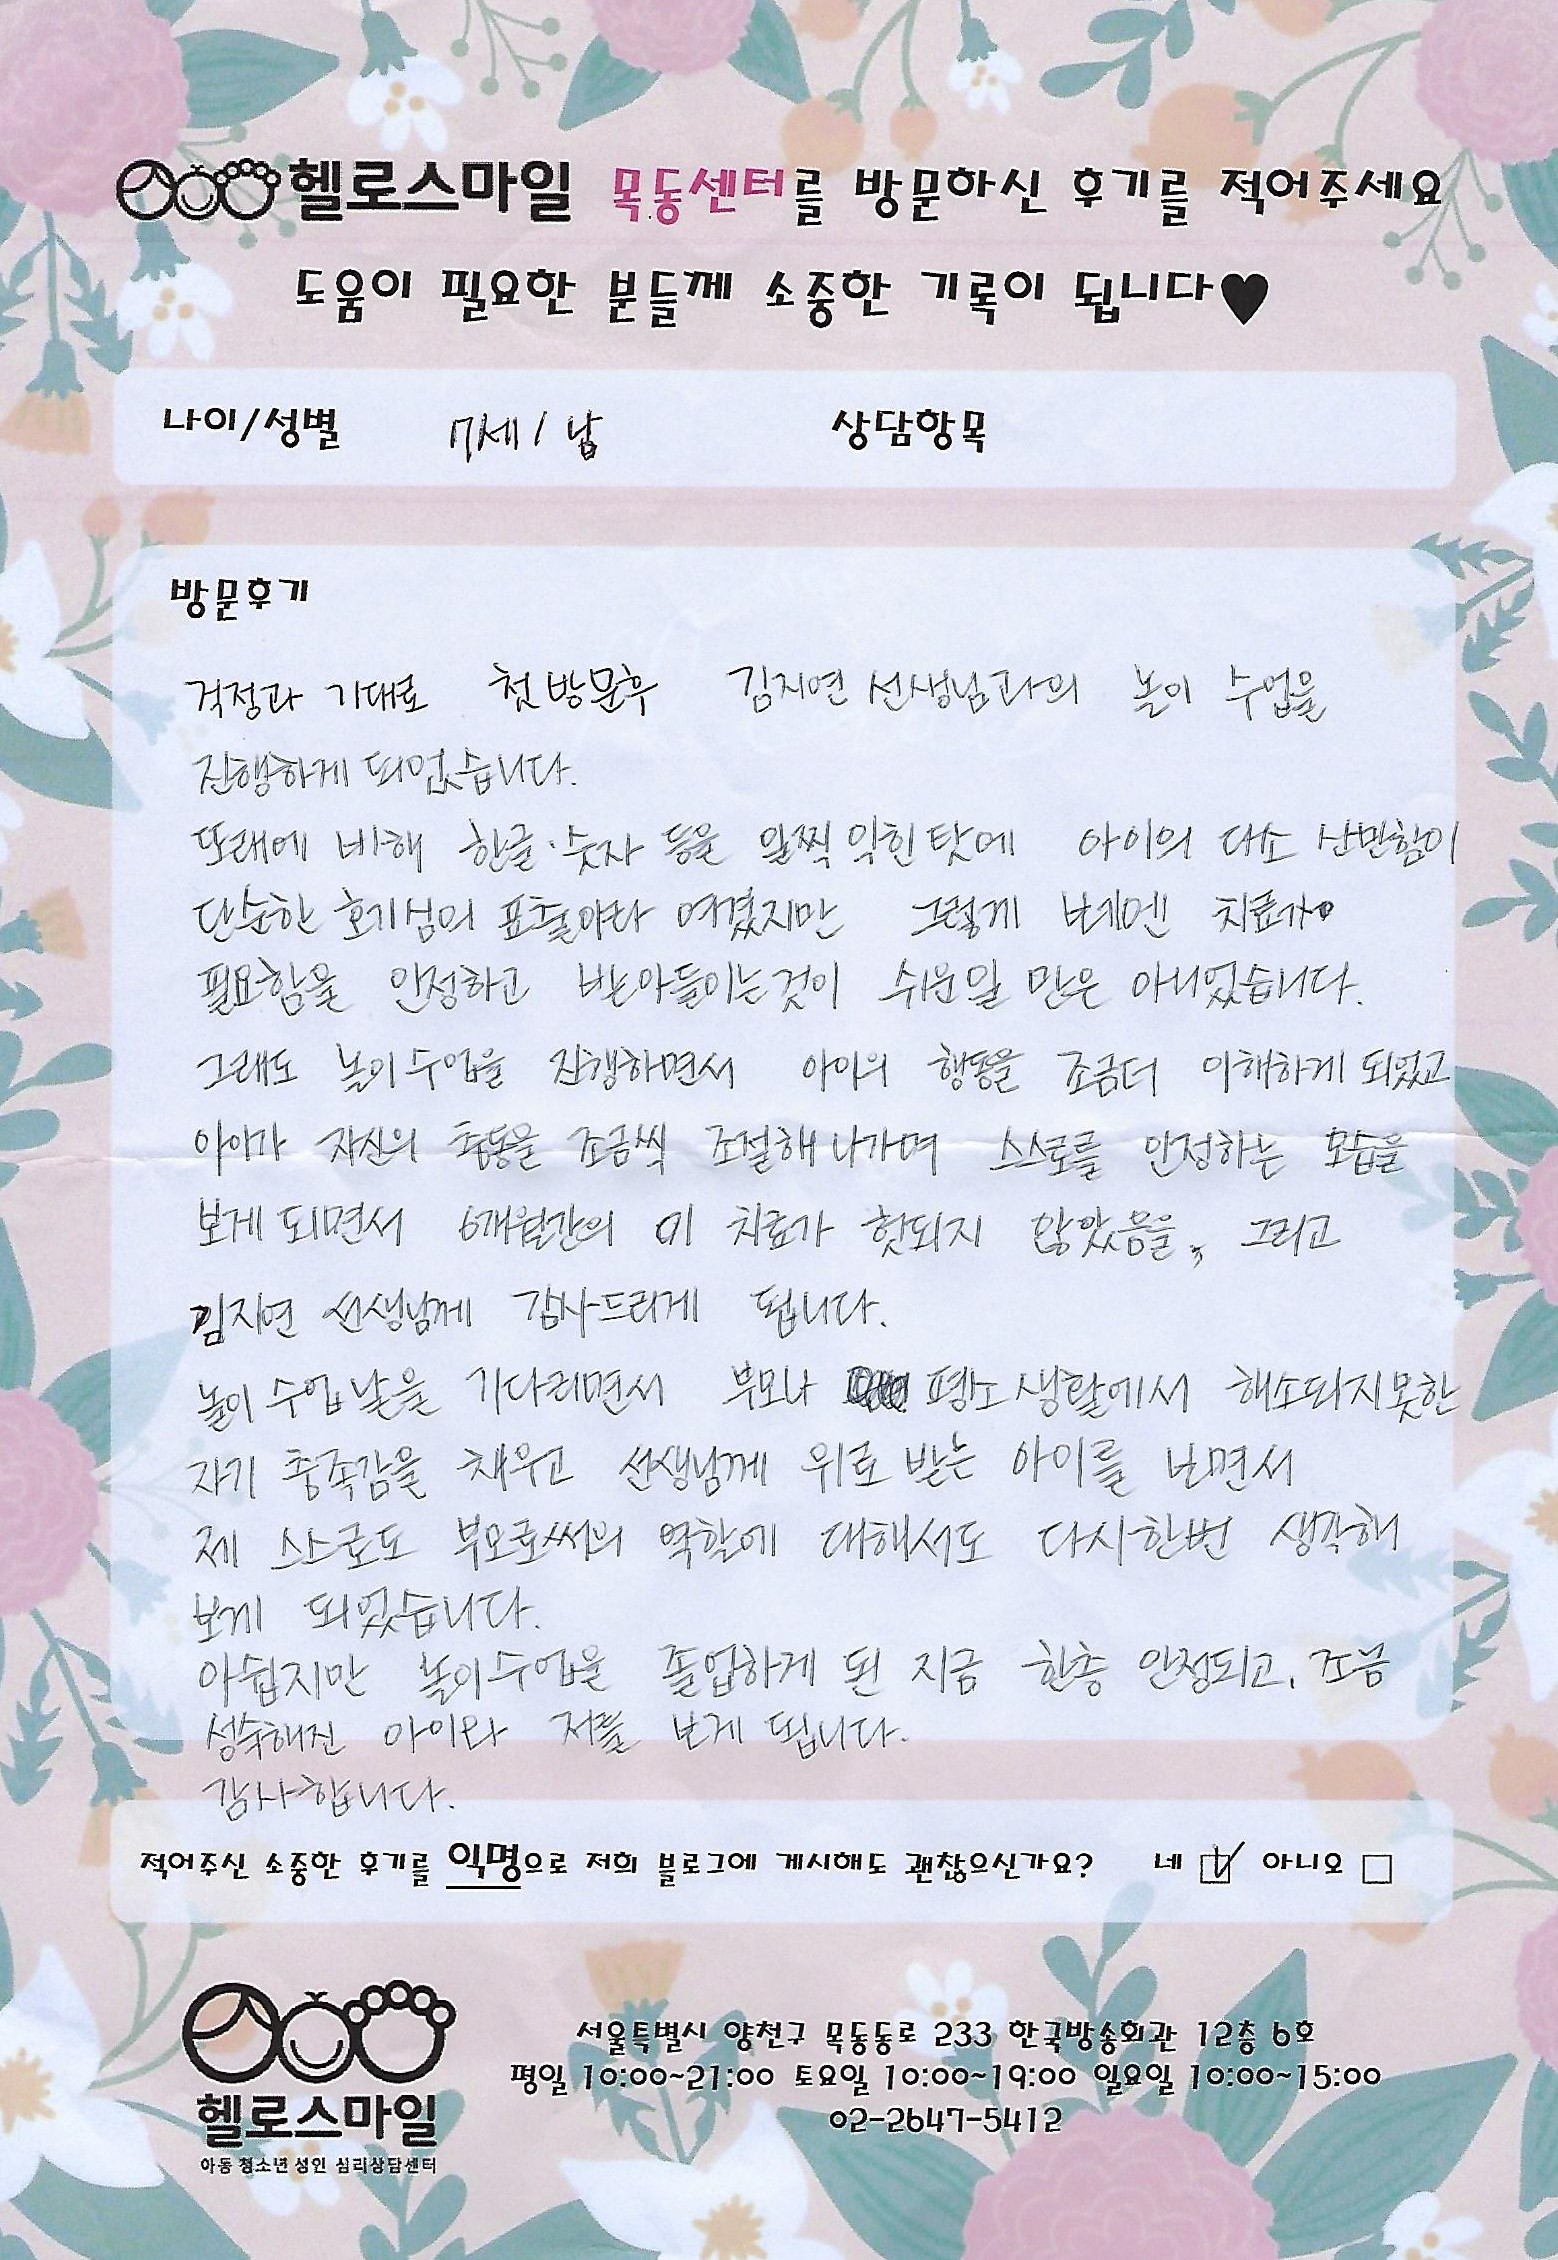 헬로스마일 목동센터를 방문하신 후기를 적어주세요
도움이 필요한 분들께 소중한 기록이 됩니다♥
나이/성별 7세/남 상담항목
방문후기
걱정과 기대로 첫 방문후 김지연 선생님과의 놀이 수업을
진행하게 되었습니다.
또래에 비해 한글·숫자 등을 일찍 익힌 탓에 아이의 다소 산만함이
단순한 호기심의 표출이라 여겼지만 그렇게 보에엔 치료가
필요함을 인정하고 받아들이는것이 쉬운일 만은 아니었습니다.
그래도 놀이수업을 진행하면서 아이의 행동을 조금더 이해하게 되었고
아이가 자신의 충동을 조금씩 조절해 나가며 스스로를 안정하는 모습을
보게 되면서 6개월간의 이 치료가 헛되지 않았음을, 그리고
김지연 선생님께 감사드리게 됩니다.
놀이 수업 날을 기다리면서 부모나 평소 생활에서 해소되지못한
자기 충족감을 채우고 선생님께 위로 받는 아이를 보면서
제 스스로도 부모로써의 역할에 대해서도 다시한번 생각해
보게 되었습니다.
아쉽지만 놀이수업을 졸업하게 된 지금 한층 안정되고, 조금
성숙해진 아이와 저를 보게 됩니다.
감사합니다.
적어주신 소중한 후기를 익명으로 저희 블로그에 게시해도 괜찮으신가요? 네 ☑ 아니오 □
서울특별시 양천구 목동동로 233 한국방송회관 12층 6호
평일 10:00~21:00 토요일 10:00~19:00 일요일 10:00~15:00
02-2647-5412
헬로스마일
아동 청소년 성인 심리상담센터